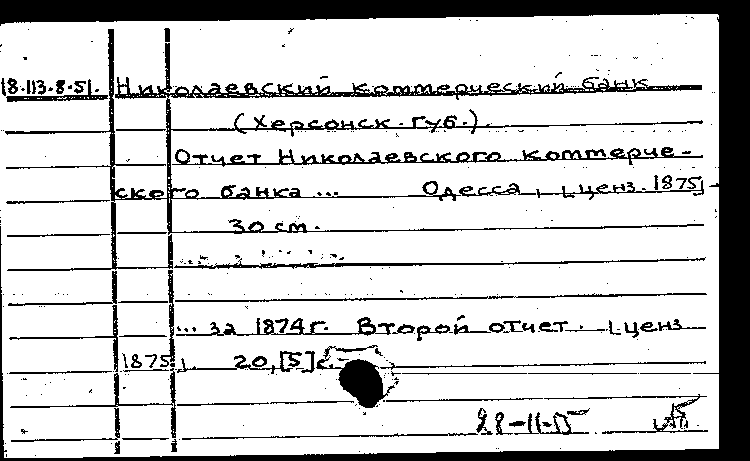 18.113.8.51. Николаевский коммерческий банк
(Херсонск. губ.)
Отчет Николаевского коммерче-
ского банка ... Одесса, [ценз. 1875] -
30 см.
... за 1874 г. Второй отчет. [ценз
1875]. 20,[5]с.
28-11-55